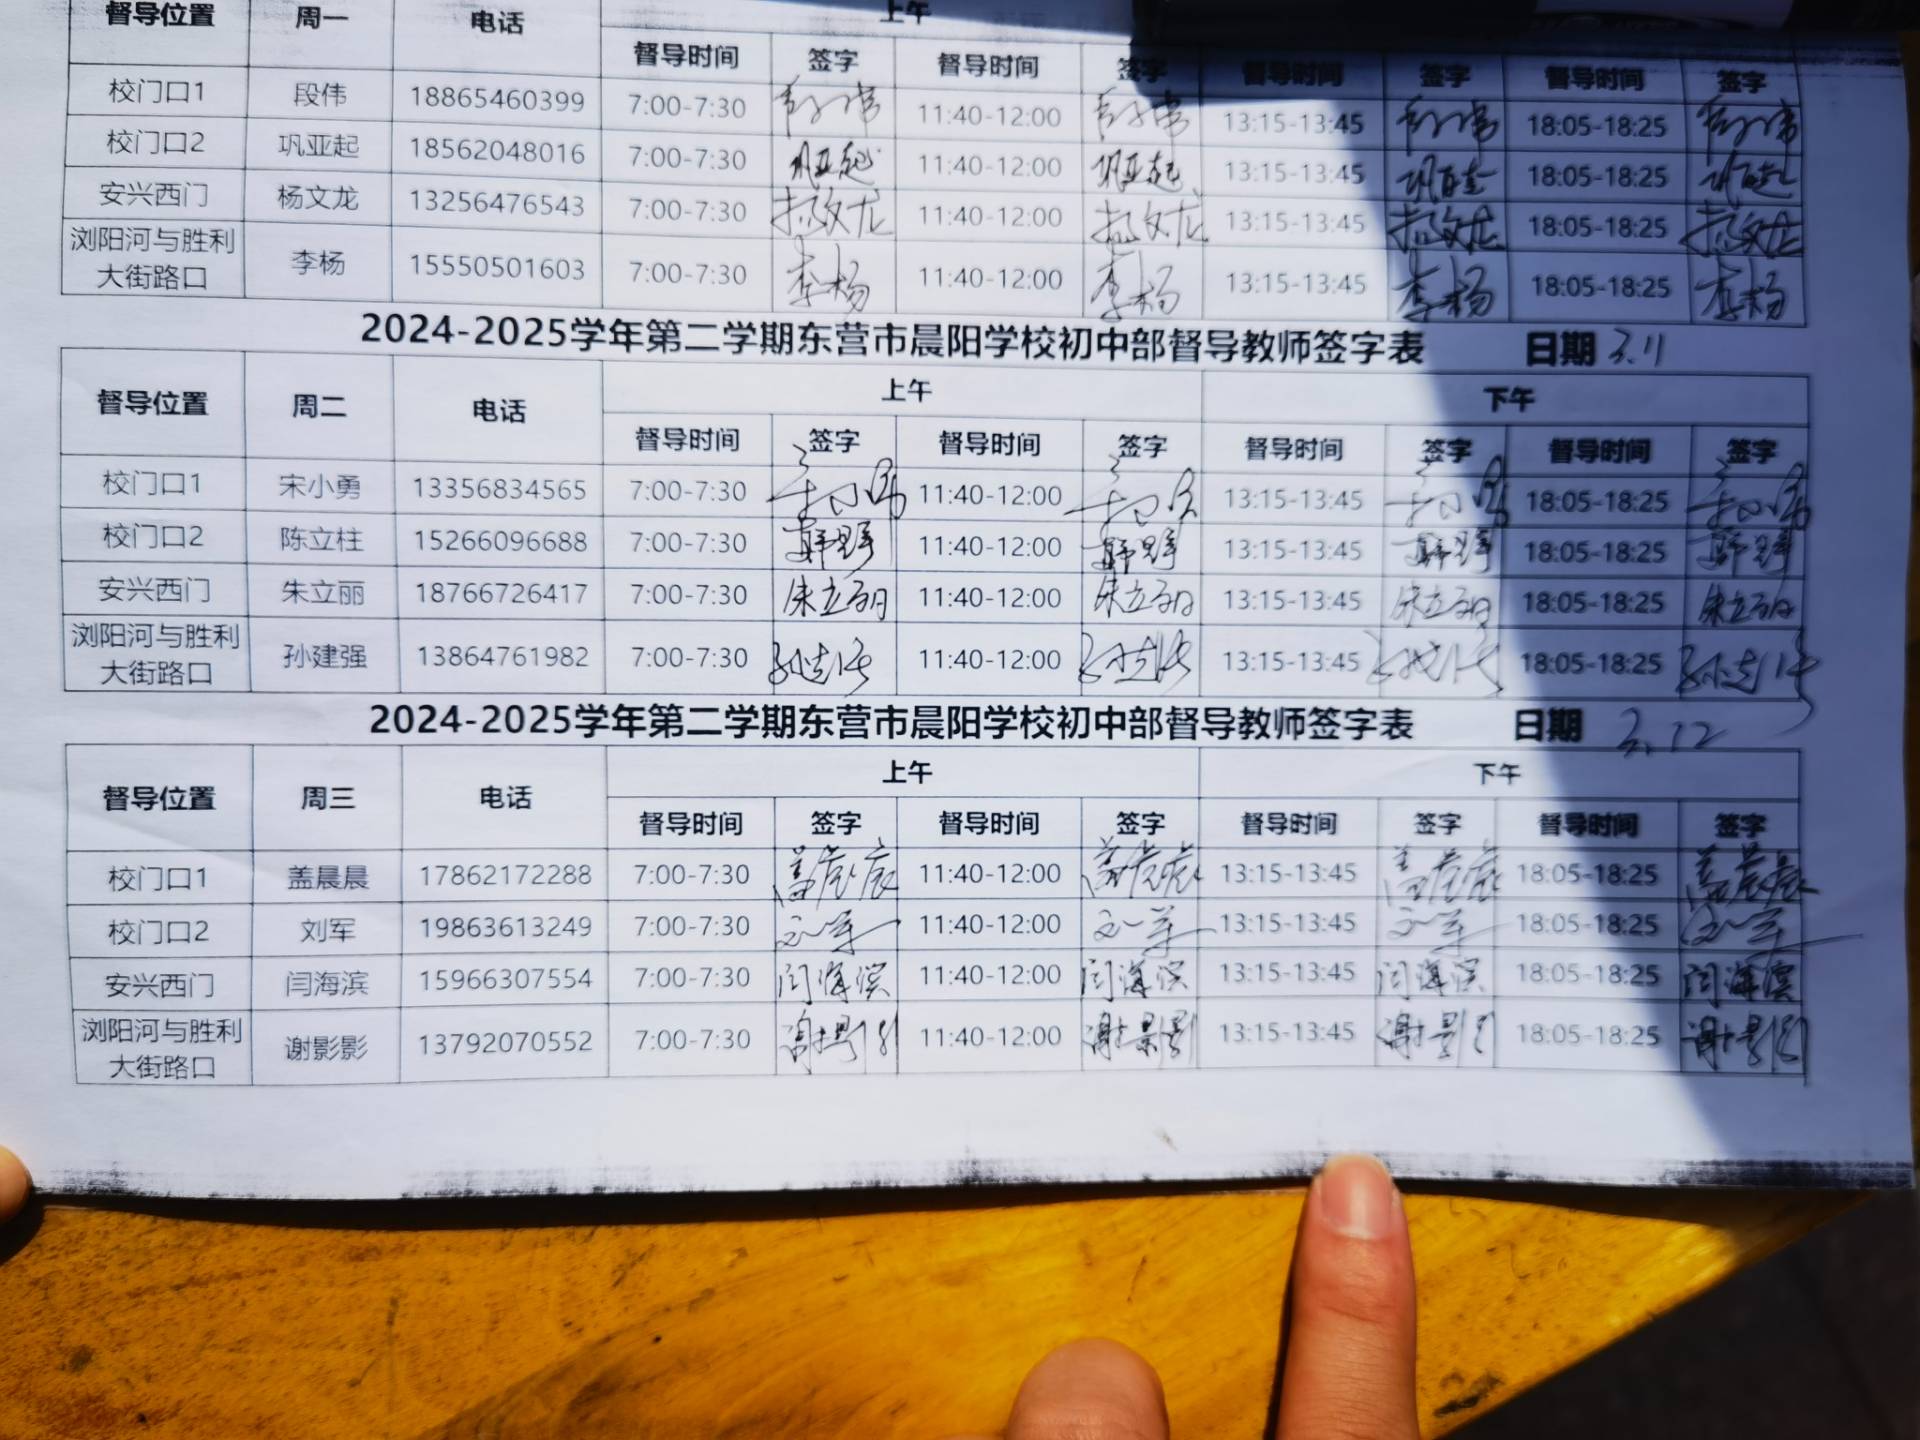 督导位置 周一 电话 上午
督导时间 签字 督导时间 签字 督导时间 签字 督导时间 签字
校门口1 段伟 18865460399 7:00-7:30 段伟 11:40-12:00 段伟 13:15-13:45 段伟 18:05-18:25 段伟
校门口2 巩亚起 18562048016 7:00-7:30 巩亚起 11:40-12:00 巩亚起 13:15-13:45 巩亚起 18:05-18:25 巩亚起
安兴西门 杨文龙 13256476543 7:00-7:30 杨文龙 11:40-12:00 杨文龙 13:15-13:45 杨文龙 18:05-18:25 杨文龙
浏阳河与胜利
大街路口 李杨 15550501603 7:00-7:30 李杨 11:40-12:00 李杨 13:15-13:45 李杨 18:05-18:25 李杨
2024-2025学年第二学期东营市晨阳学校初中部督导教师签字表 日期 3.11
督导位置 周二 电话 上午 下午
督导时间 签字 督导时间 签字 督导时间 签字 督导时间 签字
校门口1 宋小勇 13356834565 7:00-7:30 宋小勇 11:40-12:00 宋小勇 13:15-13:45 宋小勇 18:05-18:25 宋小勇
校门口2 陈立柱 15266096688 7:00-7:30 11:40-12:00 13:15-13:45 18:05-18:25
安兴西门 朱立丽 18766726417 7:00-7:30 朱立丽 11:40-12:00 朱立丽 13:15-13:45 朱立丽 18:05-18:25 朱立丽
浏阳河与胜利
大街路口 孙建强 13864761982 7:00-7:30 孙建强 11:40-12:00 孙建强 13:15-13:45 孙建强 18:05-18:25 孙建强
2024-2025学年第二学期东营市晨阳学校初中部督导教师签字表 日期 3.12
督导位置 周三 电话 上午 下午
督导时间 签字 督导时间 签字 督导时间 签字 督导时间 签字
校门口1 盖晨晨 17862172288 7:00-7:30 盖晨晨 11:40-12:00 盖晨晨 13:15-13:45 盖晨晨 18:05-18:25 盖晨晨
校门口2 刘军 19863613249 7:00-7:30 刘军 11:40-12:00 刘军 13:15-13:45 刘军 18:05-18:25 刘军
安兴西门 闫海滨 15966307554 7:00-7:30 闫海滨 11:40-12:00 闫海滨 13:15-13:45 闫海滨 18:05-18:25 闫海滨
浏阳河与胜利
大街路口 谢影影 13792070552 7:00-7:30 谢影影 11:40-12:00 谢影影 13:15-13:45 谢影影 18:05-18:25 谢影影